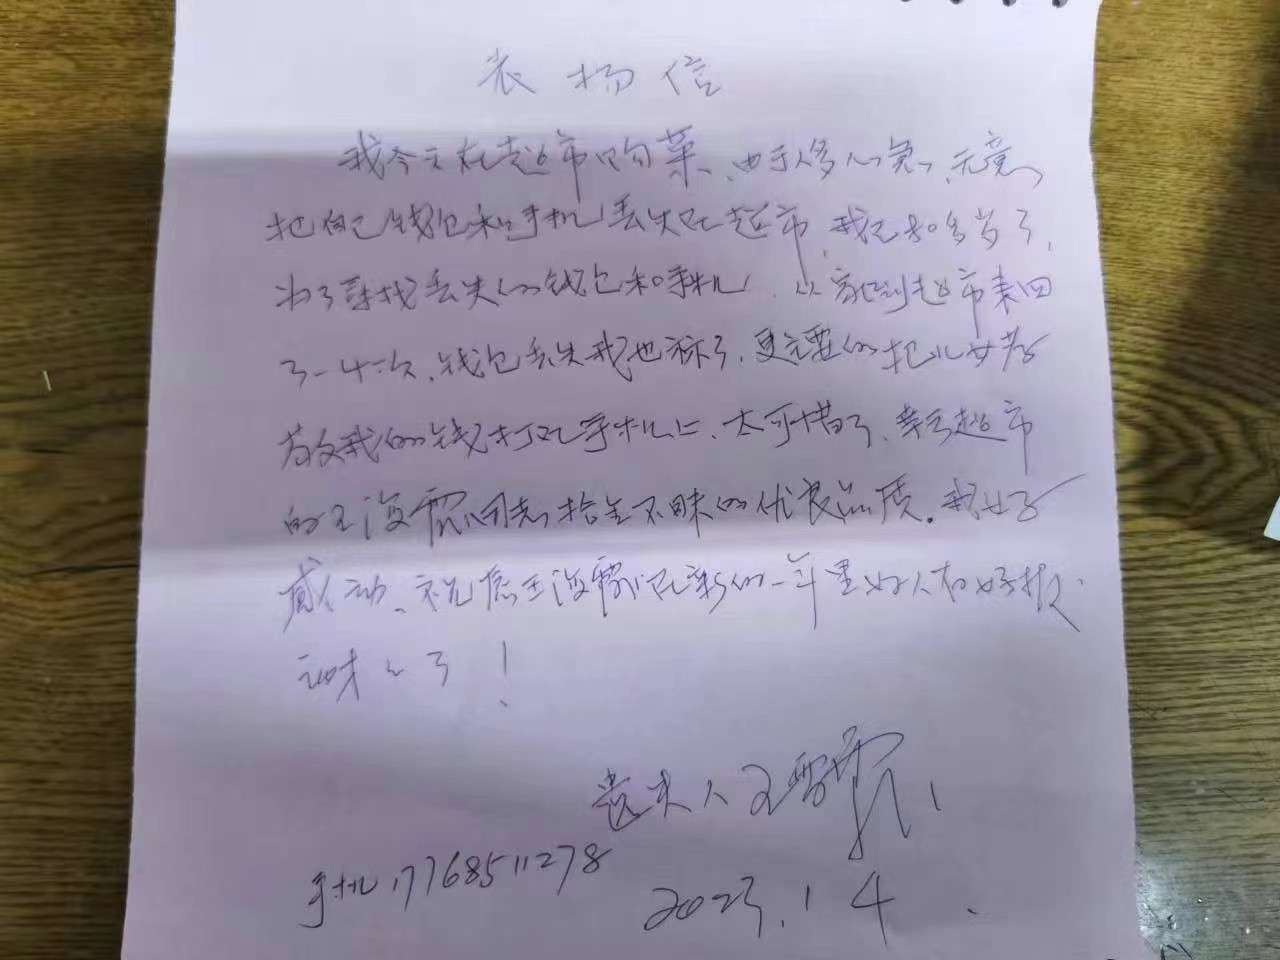 表扬信
我今天在超市购菜、由于人多心急、无意
把自己钱包和手机丢失在超市，我已80多岁了，
为了寻找丢失的钱包和手机，从家到超市来回
3-4次、钱包丢失我也称了，更主要的把儿女孝
敬我的钱打在手机上、太可惜了、幸亏超市
的王海霞同志拾金不昧的优良品质。我
感动、祝愿王海霞在新的一年里好人有好报.
了！
遗失人王
手机17768511278
2023.1 4